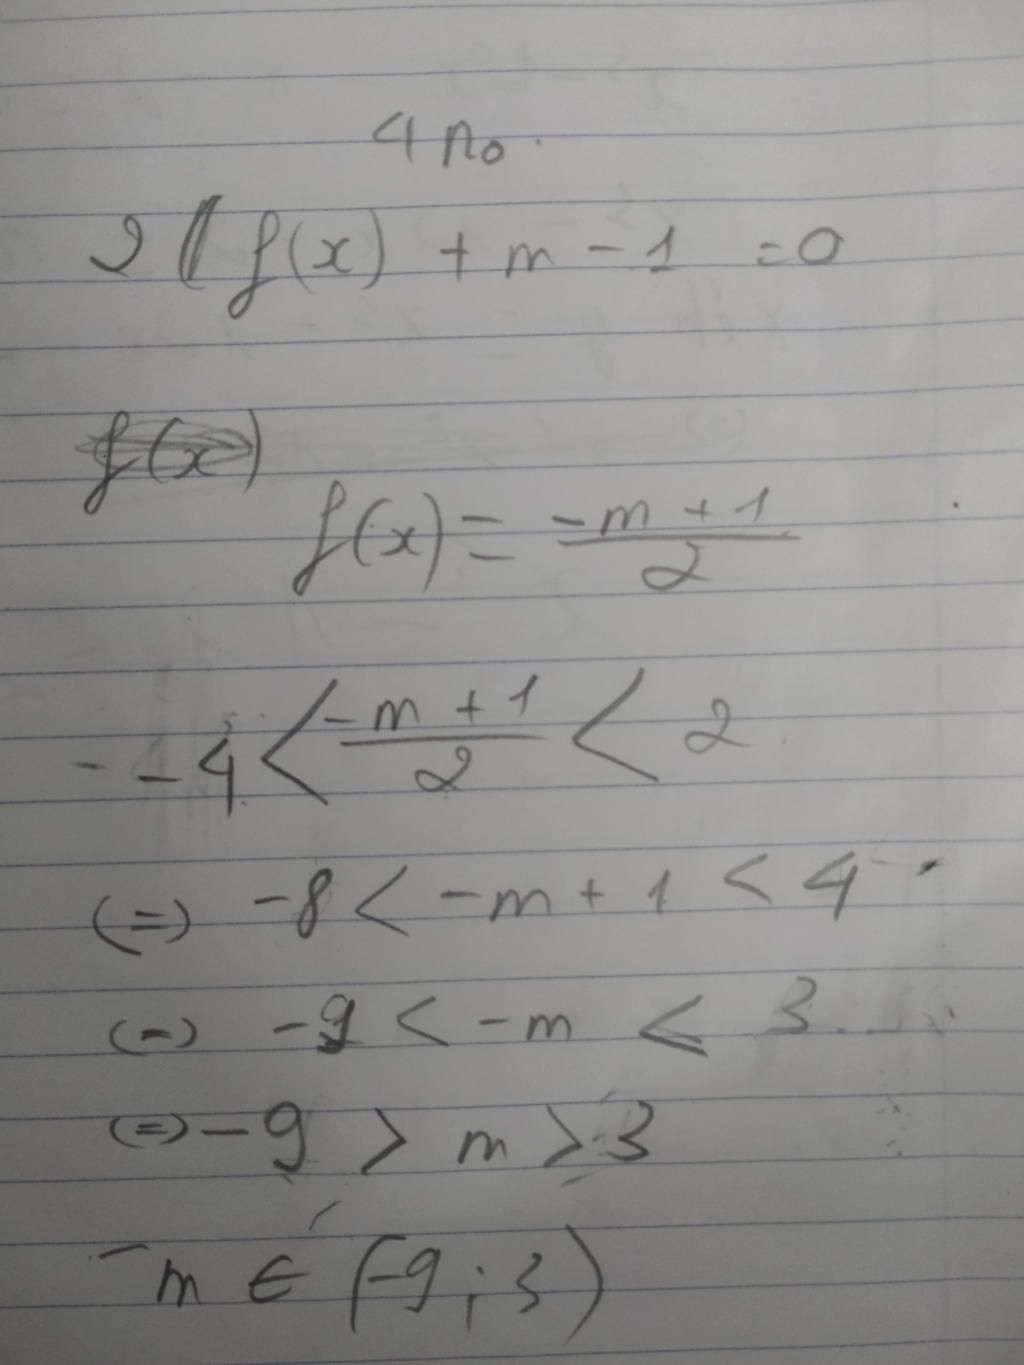 4 no.
2 f(x) + m - 1 = 0
f(x)
f(x) = (-m + 1)/2
- -4 < (-m + 1)/2 < 2
(=) -8 < -m + 1 < 4
(=) -9 < -m < 3
(=) -9 > m > 3
m ∈ (-9 ; 3)